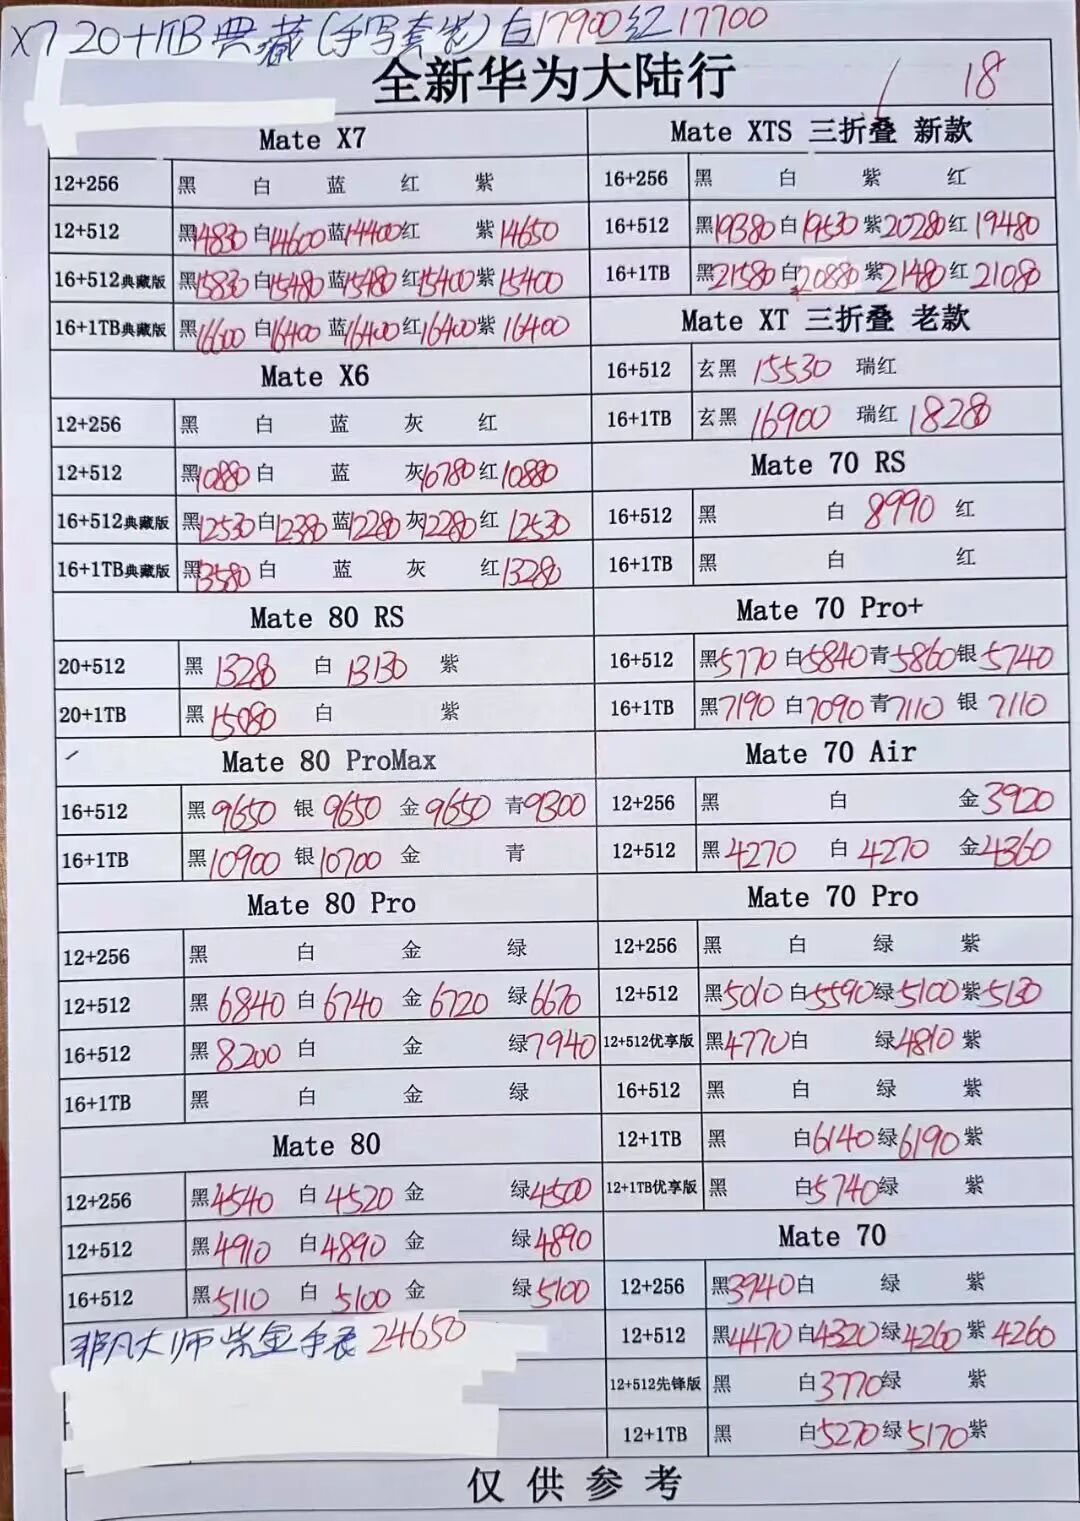 X7 20+1TB典藏(手写套装)白17900红17700
全新华为大陆行
1/18
Mate X7
12+256 黑 白 蓝 红 紫
12+512 黑14830 白14600 蓝14400 红 紫14650
16+512典藏版 黑15830 白15480 蓝15480 红15400 紫15400
16+1TB典藏版 黑16600 白16400 蓝16400 红16400 紫16400
Mate X6
12+256 黑 白 蓝 灰 红
12+512 黑10880 白 蓝 灰 红10880
16+512典藏版 黑12530 白12380 蓝12280 灰12280 红12530
16+1TB典藏版 黑13580 白 蓝 灰 红13280
Mate 80 RS
20+512 黑13280 白13130 紫
20+1TB 黑15080 白 紫
Mate 80 ProMax
16+512 黑9650 银9650 金9650 青9300
16+1TB 黑10900 银10700 金 青
Mate 80 Pro
12+256 黑 白 金 绿
12+512 黑6840 白6740 金6720 绿6670
16+512 黑8200 白 金 绿7940
16+1TB 黑 白 金 绿
Mate 80
12+256 黑4540 白4520 金 绿4500
12+512 黑4910 白4890 金 绿4890
16+512 黑5110 白5100 金 绿5100
非凡大师紫金手表24650
Mate XTS 三折叠 新款
16+256 黑 白 紫 红
16+512 黑19380 白19530 紫20280 红19480
16+1TB 黑21580 白20880 紫21480 红21080
Mate XT 三折叠 老款
16+512 玄黑 15530 瑞红
16+1TB 玄黑 16900 瑞红18280
Mate 70 RS
16+512 黑 白 8990 红
16+1TB 黑 白 红
Mate 70 Pro+
16+512 黑5770 白5840 青5860 银5740
16+1TB 黑7190 白7090 青7110 银7110
Mate 70 Air
12+256 黑 白 金3920
12+512 黑4270 白4270 金4360
Mate 70 Pro
12+256 黑 白 绿 紫
12+512 黑5010 白5590 绿5100 紫5130
12+512优享版 黑4770 白 绿4810 紫
16+512 黑 白 绿 紫
12+1TB 黑 白6140 绿6190 紫
12+1TB优享版 黑 白5740 绿 紫
Mate 70
12+256 黑3940 白 绿 紫
12+512 黑4470 白4320 绿4260 紫4260
12+512先锋版 黑 白3770 绿 紫
12+1TB 黑 白5270 绿5170 紫
仅供参考